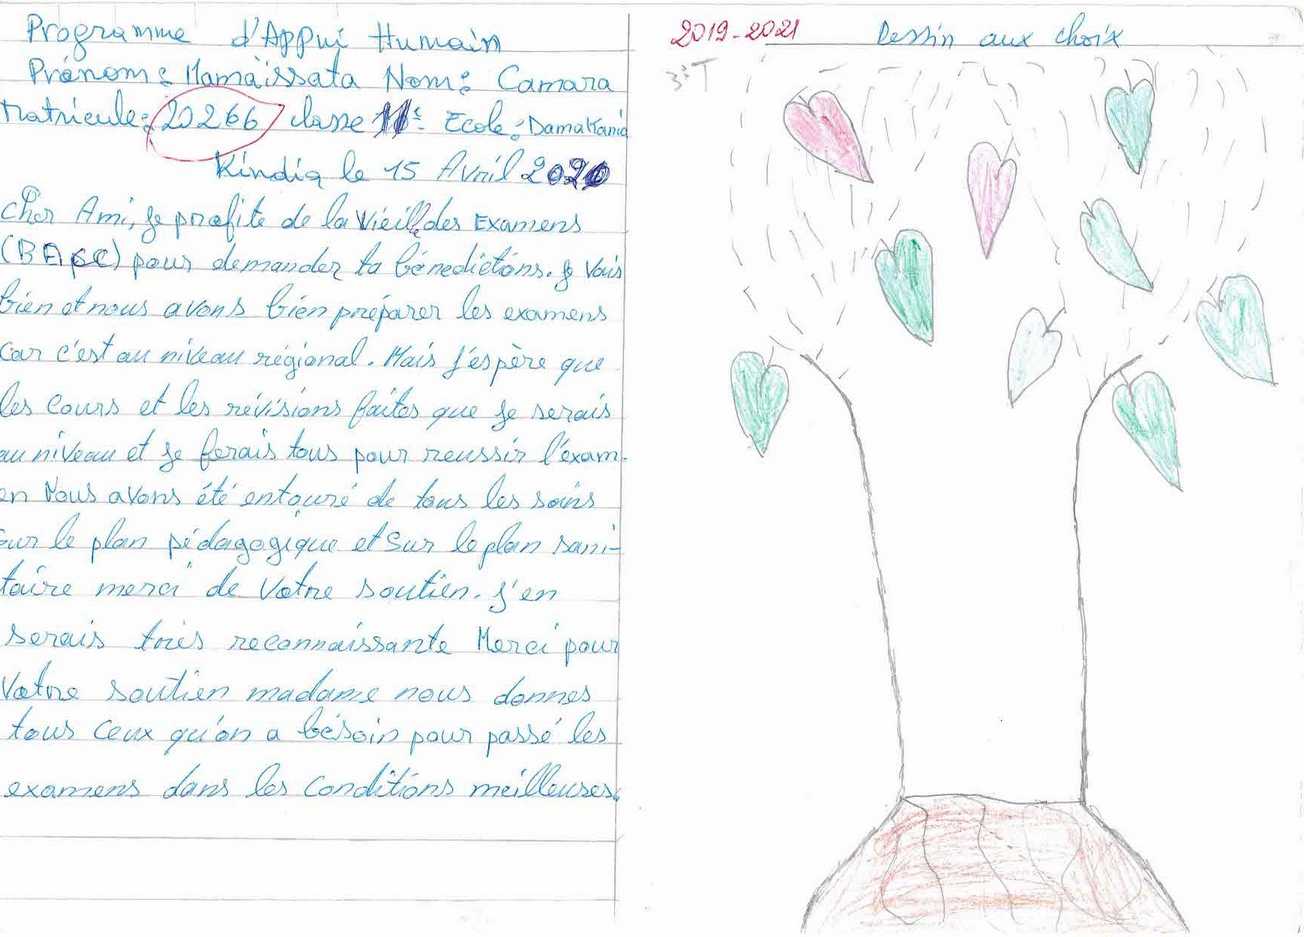 Programme d'Appui Humain
Prénom: Mamaïssata Nom: Camara
Matricule: 20266 classe 11e Ecole: Damakania
Kindia le 15 Avril 2020
Cher Ami, je profite de la vieille des Examens
(BAPC) pour demander ta bénédictions. je vais
bien et nous avons bien préparer les examens
car c'est au niveau régional. Mais j'espère que
les cours et les révisions faites que je serais
au niveau et je ferais tous pour reussir l'exam-
en Nous avons été entouré de tous les soins
sur le plan pédagogique et sur le plan sani-
taire merci de votre soutien. j'en
serais très reconnaissante Merci pour
votre soutien madame nous donnes
tous ceux qu'on a bésoin pour passé les
examens dans les conditions meilleuses.
2019-2021 Dessin aux choix
3e T